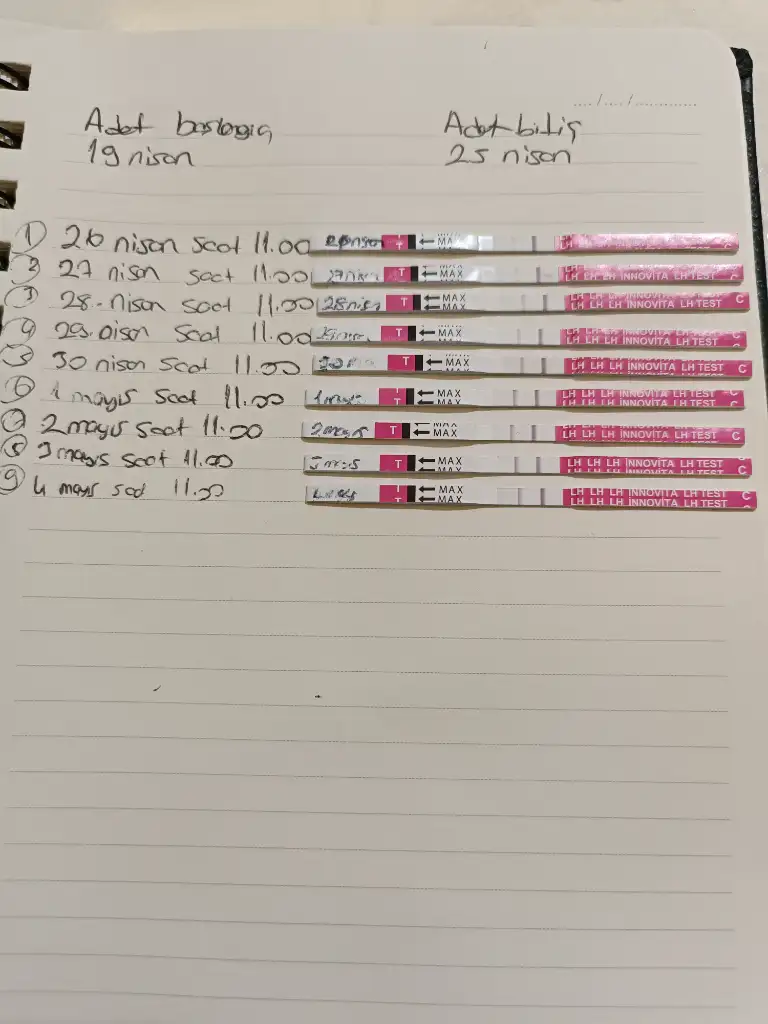 Adet başlangıç Adet bitiş
19 nisan 25 nisan
① 26 nisan saat 11.00 26 nisan T MAX LH C
② 27 nisan saat 11.00 27 nisan T MAX LH LH LH INNOVITA LH TEST C
③ 28. nisan saat 11.00 28 nisan T MAX LH LH LH INNOVITA LH TEST C
④ 29. nisan saat 11.00 T MAX LH LH LH INNOVITA LH TEST C
⑤ 30 nisan saat 11.00 T MAX LH LH LH INNOVITA LH TEST C
⑥ 1 mayıs saat 11.00 1 mayıs MAX LH LH LH INNOVITA LH TEST C
⑦ 2 mayıs saat 11.00 2 mayıs T MAX LH LH LH INNOVITA LH TEST C
⑧ 3 mayıs saat 11.00 3 mayıs T MAX LH LH LH INNOVITA LH TEST C
⑨ 4 mayıs saat 11.00 T MAX LH LH LH INNOVITA LH TEST C